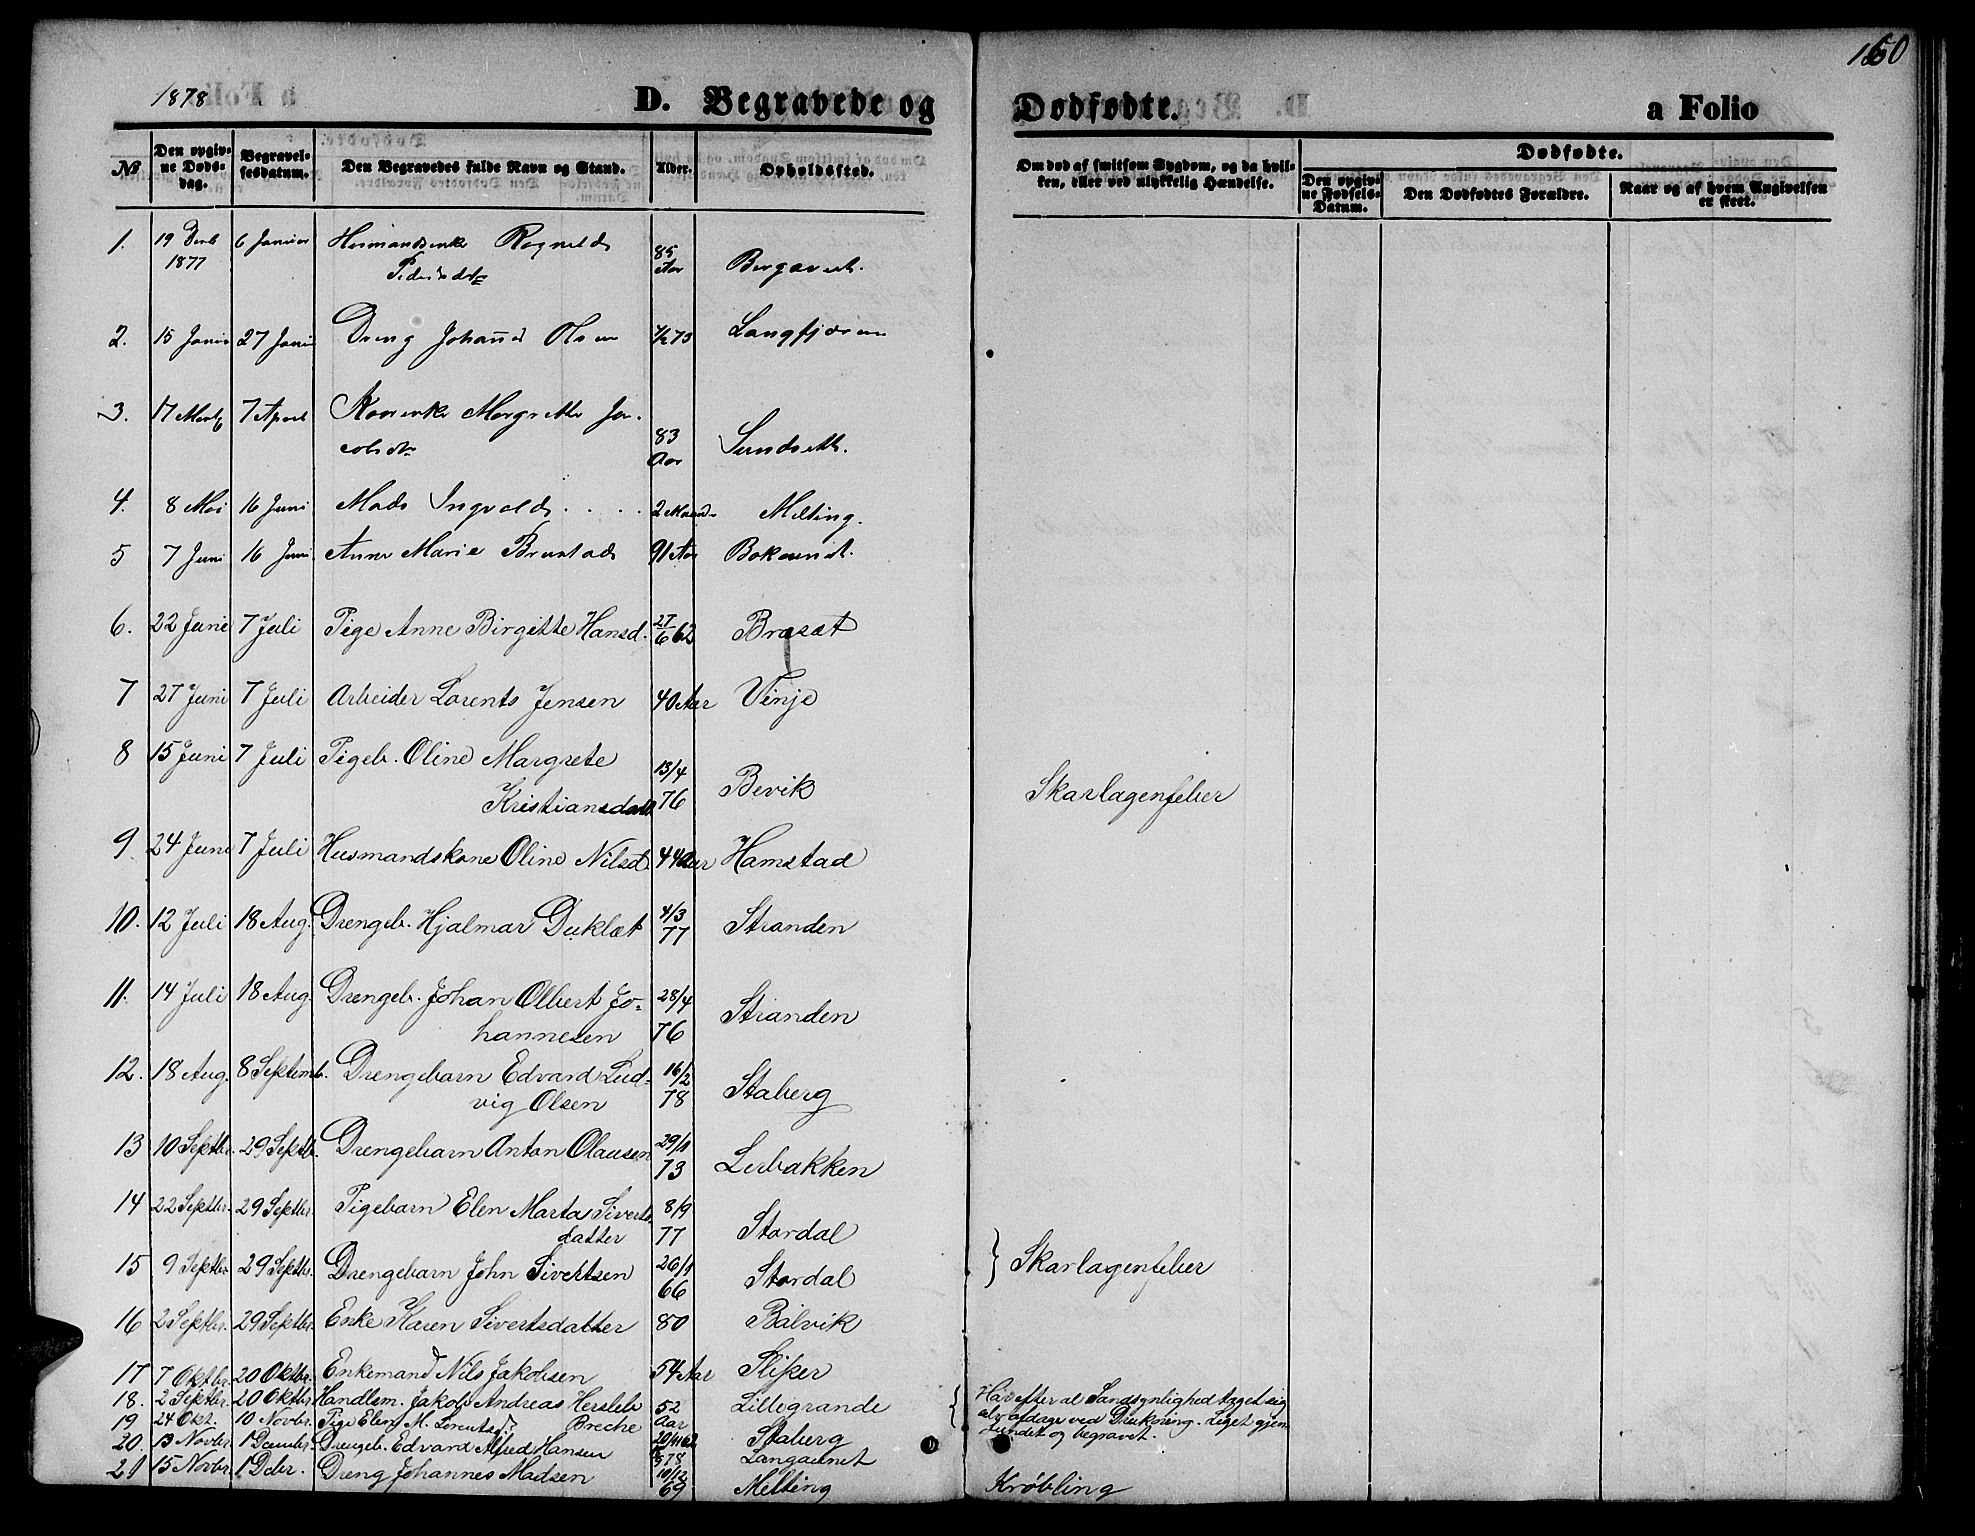 1878
D. Begravede og Dødfødte.
a Folio
160
№
Den opgivne Døds-dag.
Begravelsesdatum.
Den Begravedes fulde Navn og Stand.
Alder.
Opholdssted.
Om død af smitsom Sygdom, og da hvilken, eller ved ulykkelig Hændelse.
Dødfødte.
Den opgivne Fødsels-Datum.
Den Dødfødtes Forældre.
Naar og af hvem Angivelsen er skeet.
1. 19 Decb 1877 6 Januar 85 Aar
2. 15 Janr 27 Janr Dreng Johan Olsen
3. 17 Marts 7 April Margrethe Ja-
cobsdtr 83 Aar Sundseth.
4. 8 Mai 16 Juni Mads Ingvald . . . . 2 Maand. Melting.
5 7 Juni 16 Juni Anne Marie 91 Aar
6. 22 Juni 7 Juli Pige Anne Birgitte Hansd. 27/6 62 Bræsæt
7 27 Juni 7 Juli Arbeider Lorents Jensen 40 Aar Vinje
8 15 Juni 7 Juli Pigeb. Oline Margrete
Kristiansdatt. 13/4 76 Bevik Skarlagenfeber
9 24 Juni 7 Juli Husmandskone Oline Nilsd. 44 Aar Hamstad
10. 12 Juli 18 Aug. Drengeb. Hjalmar Duklæt 4/3 77 Stranden
11. 14 Juli 18 Aug. Drengeb. Johan Olbert Jo-
hannesen 28/4 76 Stranden
12. 18 Aug. 8 Septemb. Drengebarn Edvard Lud-
vig Olsen 16/2 78 Staberg
13 10 Septbr. 29 Septb. Drengebarn Anton Olausen 29/11 73 Lerbakken
14 22 Septbr. 29 Septbr. Pigebarn Elen Marta Siverts-
datter 8/9 77 Stordal
15 9 Septbr 29 Septbr. Drengebarn John Sivertsen 26/1 66 Stordal } Skarlagenfeber
16 2 Septbr. 29 Septbr. Enke Karen Sivertsdatter 80 Balvik
17 7 Oktbr. 20 Oktbr. Enkemand Nils Jakobsen 54 Aar Sliper
18. 2 Septbr. 20 Oktbr Handlsm. Jakob Andreas Hersleb
Breche 52 Aar Lillegrande { Har efter al Sandsynlighed taget sig
selv afdage ved Drukning. Liget gjen-
fundet og begravet.
19 24 Okt. 10 Novbr. Pige Elen M. Lorentsd. Staberg
20. 13 Novbr. 1 Decmbr. Drengeb. Edvard Alfred Hansen 78 Langaunet
21 15 Novbr. 1 Dcbr. Dreng Johannes Madsen 10/12 69 Melting Krøbling